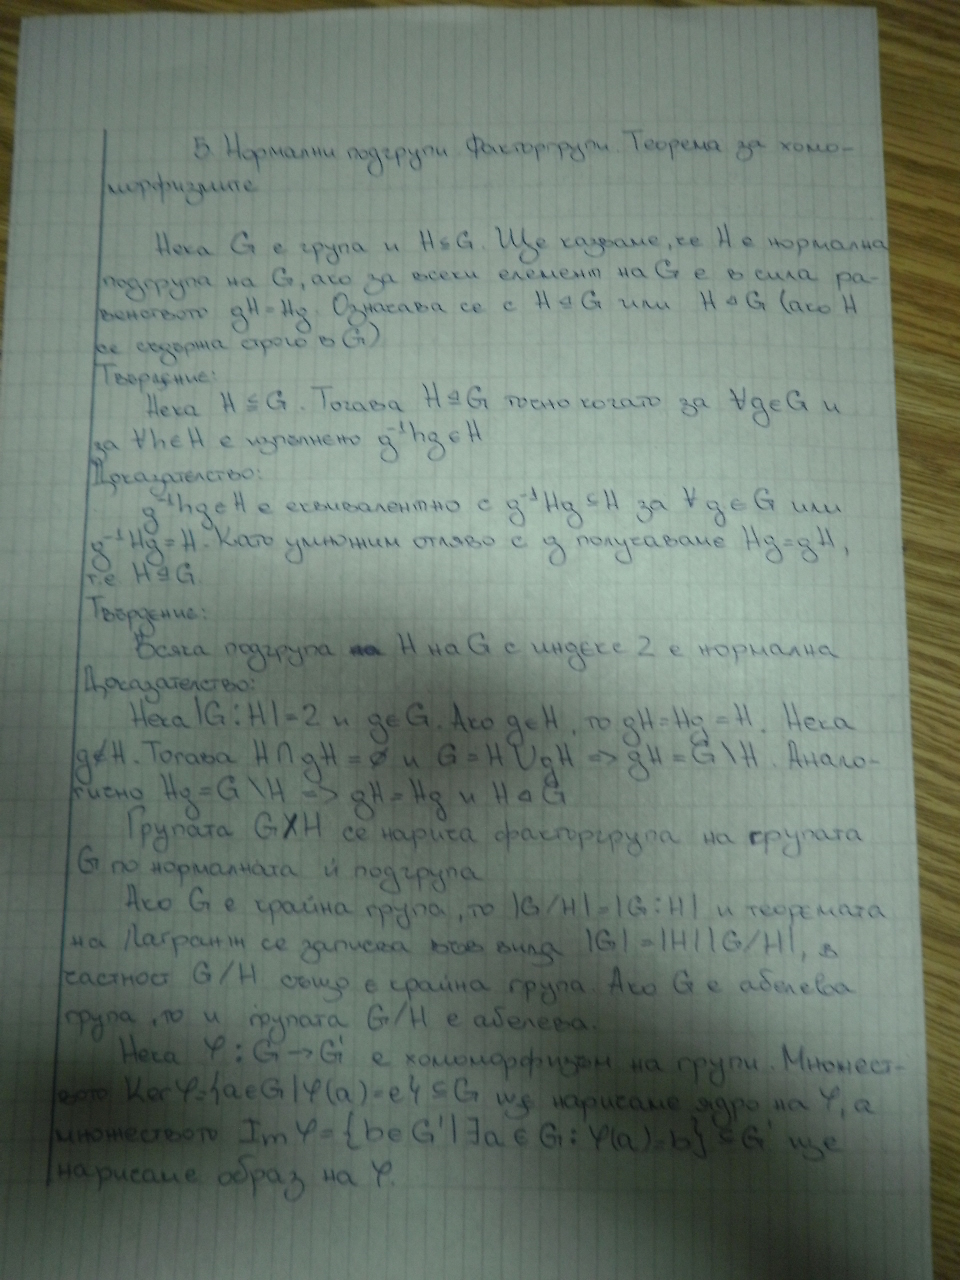 5. Нормални подгрупи. Факторгрупи. Теорема за хомо-
морфизмите
Нека G е група и H≤G. Ще казваме, че H е нормална
подгрупа на G, ако за всеки елемент на G е в сила ра-
венството gH=Hg. Означава се с H⊴G или H◁G (ако H
се съдържа строго в G)
Твърдение:
Нека H≤G. Тогава H⊴G точно когато за ∀g∈G и
за ∀h∈H е изпълнено g⁻¹hg∈H
Доказателство:
g⁻¹hg∈H е еквивалентно с g⁻¹Hg⊆H за ∀g∈G или
g⁻¹Hg=H. Като умножим отляво с g получаваме Hg=gH,
т.е H⊴G
Твърдение:
Всяка подгрупа H на G с индекс 2 е нормална
Доказателство:
Нека |G:H|=2 и g∈G. Ако g∈H, то gH=Hg=H. Нека
g∉H. Тогава H∩gH=∅ и G=H∪gH => gH=G\H. Анало-
гично Hg=G\H => gH=Hg и H◁G
Групата G/H се нарича факторгрупа на групата
G по нормалната ѝ подгрупа
Ако G е крайна група, то |G/H|=|G:H| и теоремата
на Лагранж се записва във вида |G|=|H||G/H|, в
частност G/H също е крайна група. Ако G е абелева
група, то и групата G/H е абелева.
Нека φ:G→G' е хомоморфизъм на групи. Множест-
вото Kerφ={a∈G|φ(a)=e'}⊆G ще наричаме ядро на φ, а
множеството Imφ={b∈G'|∃a∈G:φ(a)=b}⊆G' ще
наричаме образ на φ.